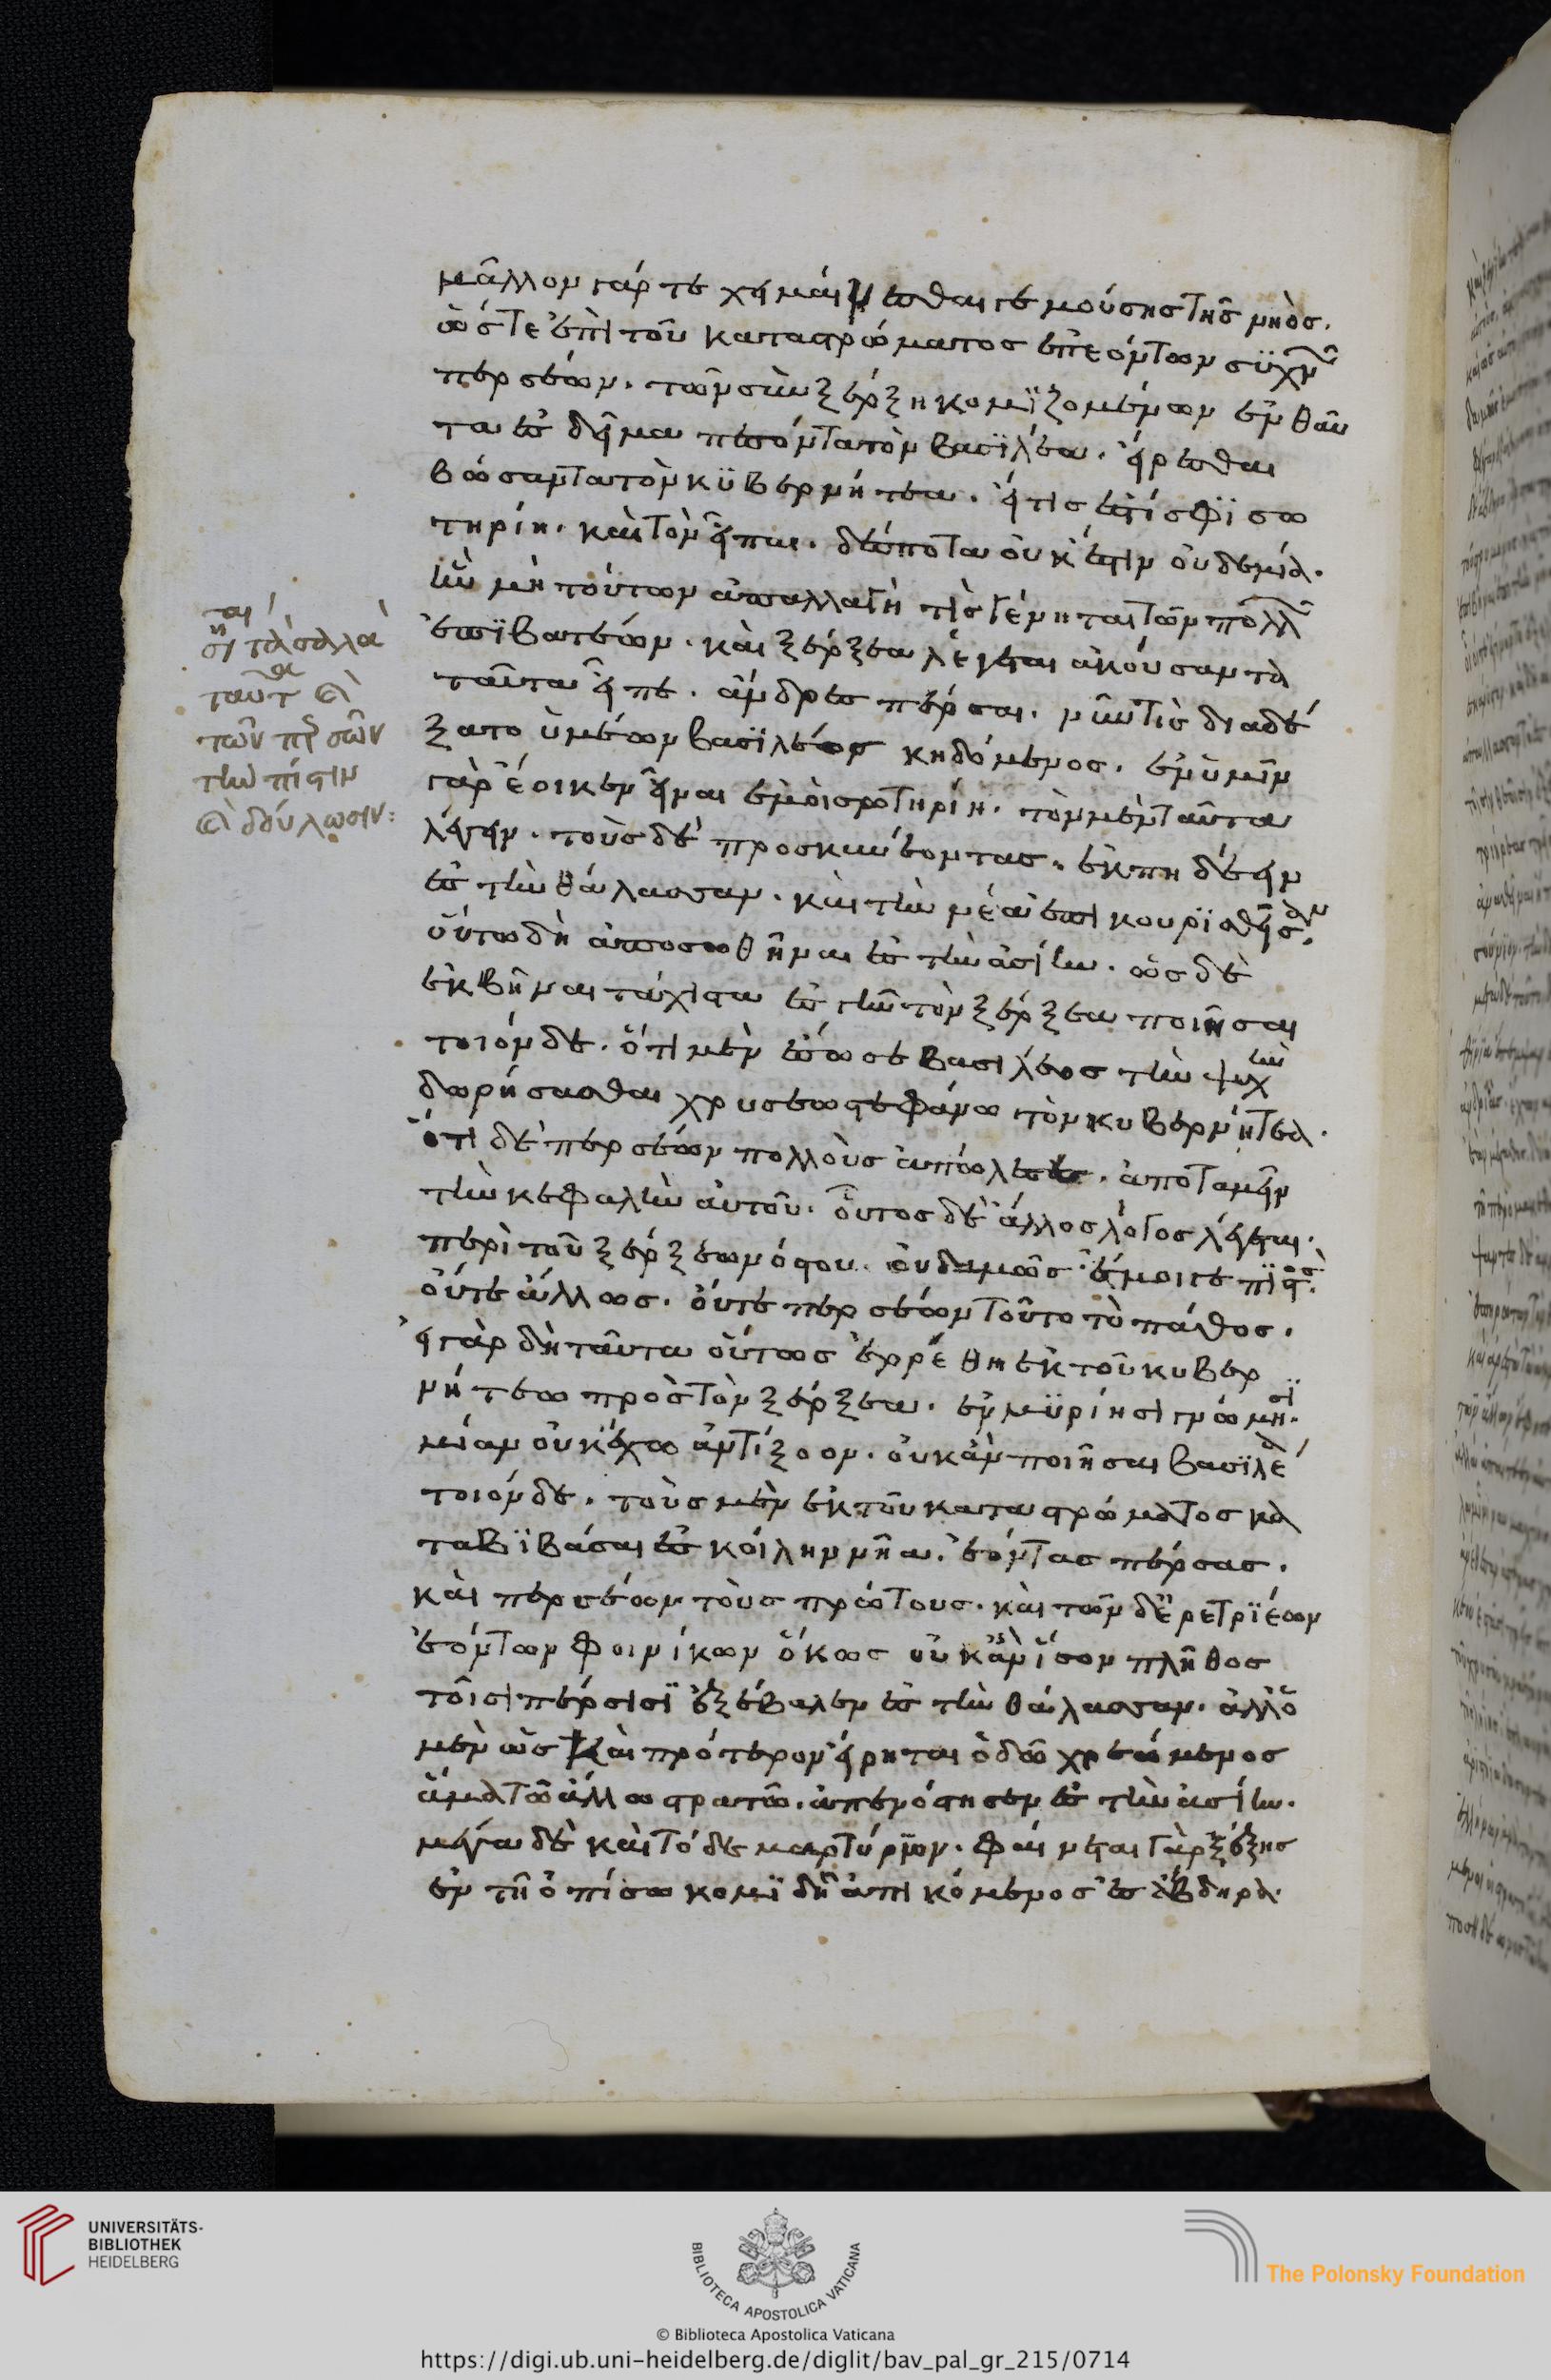 μᾶλλον γάρ τε χειμαίνεσθαι γεμούσης τῆς νηὸς.
ὥστε ἐπὶ τοῦ καταστρώματος ἐπεόντων συχνῶν
περσέων. τῶν σὺν ξέρξη κομϊζομένων ἐνθαῦ
τα ἐς δεῖμα πεσόντα τὸν βασϊλέα. εἴρεσθαι
βώσαντα τὸν κϋβερνήτεα. εἴ τις ἐστί σφϊ σω
τηρίη. καὶ τὸν εἶπαι. δέσποτα οὐκ ἔστιν οὐδεμία.
ἢν μὴ τούτων ἀπαλλαγή τις γένηται τῶν πολλῶν
ἐπϊβατέων. καὶ ξέρξεα λέγεται ἀκούσαντα
ταῦτα εἶπε. ἄνδρες πέρσαι. νῦν τὶς διαδε
ξάτο ὑμέων βασϊλέος κηδόμενος. ἐν ὑμῖν
γὰρ ἔοικεν εἶναι ἐμοὶ σωτηρίη. τὸν μὲν ταῦτα
λέγειν. τοὺς δὲ προσκυνέοντας. ἐκπηδέειν
ἐς τὴν θάλασσαν. καὶ τὴν νέα ἐπικουρϊσθεῖσαν.
οὕτω δὴ ἀποσωθῆναι ἐς τὴν ἀσίην. ὡς δὲ
ἐκβῆναι τάχιστα ἐς γῆν τὸν ξέρξεα ποιῆσαι
τοιόνδε. ὅτι μὲν ἔσωσε βασιλέος τὴν ψυχὴν
δωρήσασθαι χρυσέω στεφάνω τὸν κυβερνήτεα.
ὅτι δὲ περσέων πολλοὺς ἀπώλεσε. ἀποταμεῖν
τὴν κεφαλὴν αὐτοῦ. οὗτος δὲ ἄλλος λόγος λέγεται.
περὶ τοῦ ξέρξεω νόστου. οὐδαμῶς ἔμοιγε πϊστὸς.
οὔτε ἄλλως. οὔτε περσέων τοῦτο τὸ πάθος.
εἰ γὰρ δὴ ταῦτα οὕτως ἐρρέθη ἐκ τοῦ κυβερ
νήτεω πρὸς τὸν ξέρξεα. ἐν μϋρίησι γνώμησϊ.
μίαν οὐκ ἔχω ἀντίξοον. οὐκ ἂν ποιῆσαι βασϊλέα
τοιόνδε. τοὺς μὲν ἐκ τοῦ καταστρώματος κα
ταβϊβάσαι ἐς κοίλην νῆα. ἐόντας πέρσας.
καὶ περσέων τοὺς πρώτους. καὶ τῶν δὲ ἐρετρϊέων
ἐόντων φοινίκων ὅκως οὐκ ἂν ἴσον πλῆθος
τοῖσι πέρσισϊ ἐξέβαλεν ἐς τὴν θάλασσαν. ἀλλ' ὁ
μὲν ὡς καὶ πρότερον εἴρηται ὁδῶ χρεώμενος
ἅμα τῶ ἄλλω στρατῶ. ἀπενόστησεν ἐς τὴν ἀσίην.
μέγα δὲ καὶ τόδε μαρτύρϊον. φαίνεται γὰρ ξέρξης
ἐν τῆ ὀπίσω κομϊδῆ ἀπικόμενος ἐς ἄβδηρα.
τῶν περσῶν
τὴν πίστιν
UNIVERSITÄTS-
BIBLIOTHEK
HEIDELBERG
BIBLIOTECA APOSTOLICA VATICANA
© Biblioteca Apostolica Vaticana
The Polonsky Foundation
https://digi.ub.uni-heidelberg.de/diglit/bav_pal_gr_215/0714